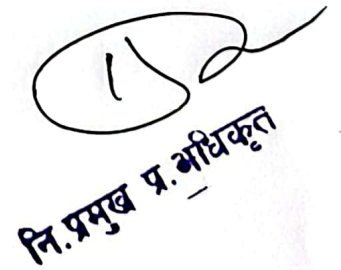 नि.प्रमुख प्र.अधिकृत